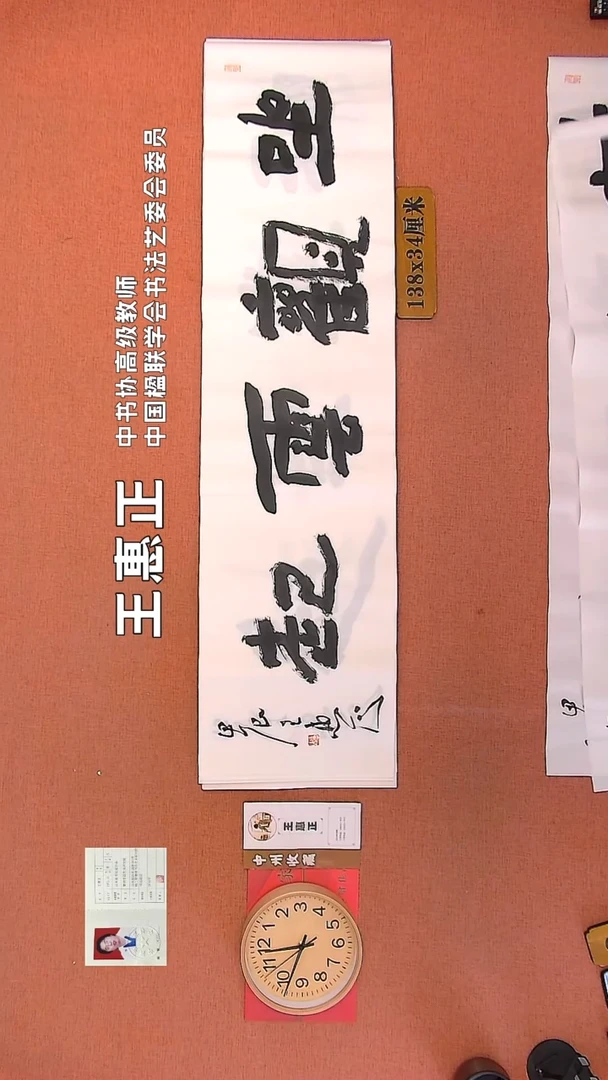 中书协高级教师
中国楹联学会书法艺委会委员
王惠正
坐觀雲起
甲辰王惠正
138x34厘米
王惠正
中州收藏
12
1
2
3
4
5
6
7
8
9
10
11